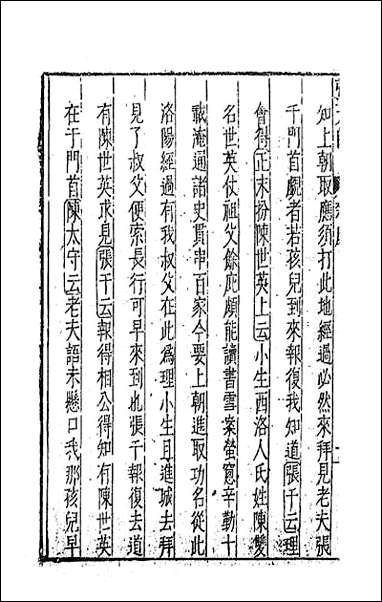 知上朝取應須打此地經過必然來拜見老夫張
千門首覷者若孩兒到來報復我知道張千云理
會得正末扮陳世英上云小生西洛人氏姓陳雙
名世英仗祖父餘庇頗能讀書雪案螢窻辛勤十
載淹通諸史貫串百家今要上朝進取功名從此
洛陽經過有我叔父在此為理小生且進城去拜
見了叔父便索長行可早來到也張千報復去道
有陳世英求見張千云報得相公得知有陳世英
在于門首陳太守云老夫語未懸口我那孩兒早